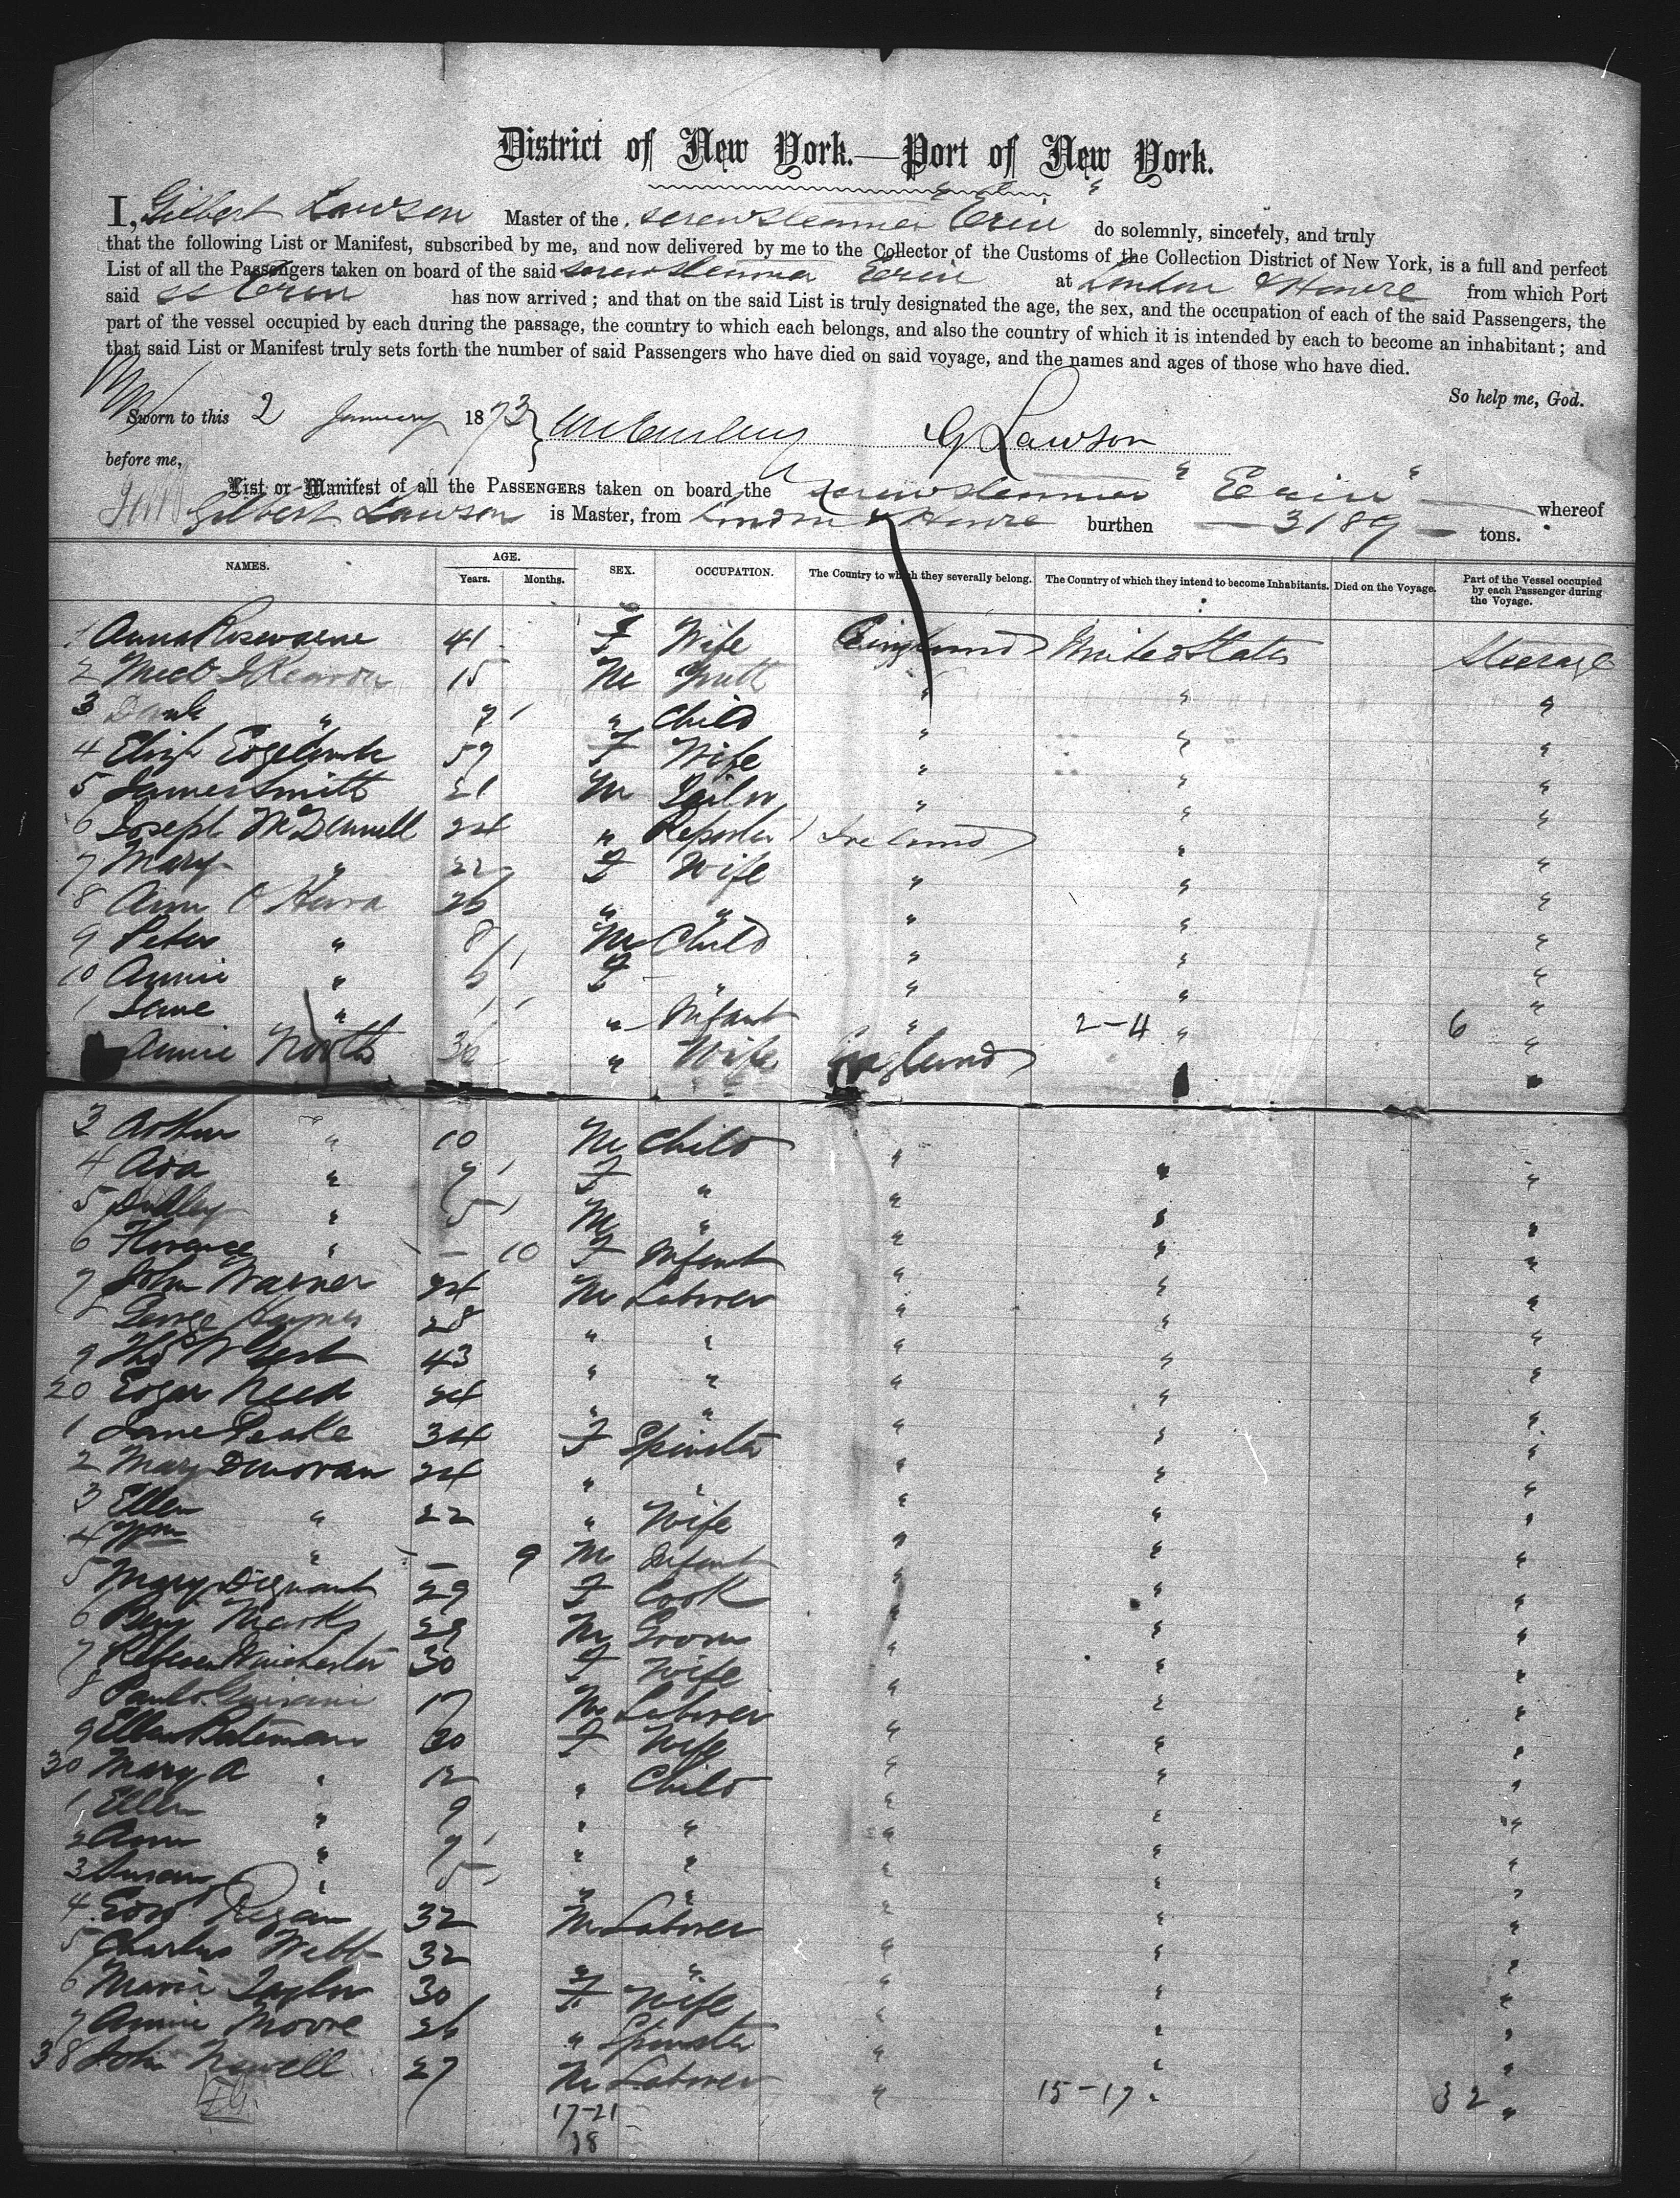 District of New York.—Port of New York.
I, Gilbert Lawson Master of the screwsteamer Erin do solemnly, sincerely, and truly
that the following List or Manifest, subscribed by me, and now delivered by me to the Collector of the Customs of the Collection District of New York, is a full and perfect
List of all the Passengers taken on board of the said screwsteamer Erin at London & Havre from which Port
said ss Erin has now arrived; and that on the said List is truly designated the age, the sex, and the occupation of each of the said Passengers, the
part of the vessel occupied by each during the passage, the country to which each belongs, and also the country of which it is intended by each to become an inhabitant; and
that said List or Manifest truly sets forth the number of said Passengers who have died on said voyage, and the names and ages of those who have died.
So help me, God.
Sworn to this 2 January 1873 } G Lawson
before me,
List or Manifest of all the PASSENGERS taken on board the screwsteamer "Erin" whereof
Gilbert Lawson is Master, from London & Havre burthen 3189 tons.
NAMES. AGE. Years. Months. SEX. OCCUPATION. The Country to which they severally belong. The Country of which they intend to become Inhabitants. Died on the Voyage. Part of the Vessel occupied by each Passenger during the Voyage.
1 Anna 41 F Wife England United States Steerage
2 15 M " " "
3 " 7 " Child " " "
4 Eliz 59 F Wife " " "
5 James Smith 21 M Tailor " " "
6 Joseph McDannell 24 " Reporter Ireland " "
7 Mary " 22 F Wife " " "
8 Ann O'Hara 26 " " " " "
9 Peter " 8 M Child " " "
10 Annie " 6 F " " " "
1 Jane " 1 " Infant " 2-4 " 6 "
Annie North 36 " Wife England " "
3 Arthur " 10 M Child " " "
4 Ada " 7 F " " " "
5 Dudley " 5 M " " " "
6 Florence " - 10 F Infant " " "
7 John Warner 24 M Laborer " " "
8 George Haynes 28 " " " " "
9 Thos W 43 " " " " "
20 Edgar Need 24 " " " " "
1 Jane Peake 34 F Spinster " " "
2 Mary Donovan 24 " " " " "
3 Ellen " 22 " Wife " " "
4 Wm " - 9 M Infant " " "
5 Mary Dignant 29 F Cook " " "
6 Benj Marks 29 M Groom " " "
7 Rebecca Winchester 30 F Wife " " "
8 17 M Laborer " " "
9 Ellen Bateman 30 F Wife " " "
30 Mary A " 12 " Child " " "
1 Ellen " 9 " " " " "
2 Ann " 7 " " " " "
3 Susan " 5 " " " " "
4 Edwd Regan 32 M Laborer " " "
5 Charles Webb 32 " " " " "
6 Maria Taylor 30 F Wife " " "
7 Annie Moore 26 " Spinster " " "
38 John Newell 27 M Laborer " 15-17 " 32 "
17-21
38